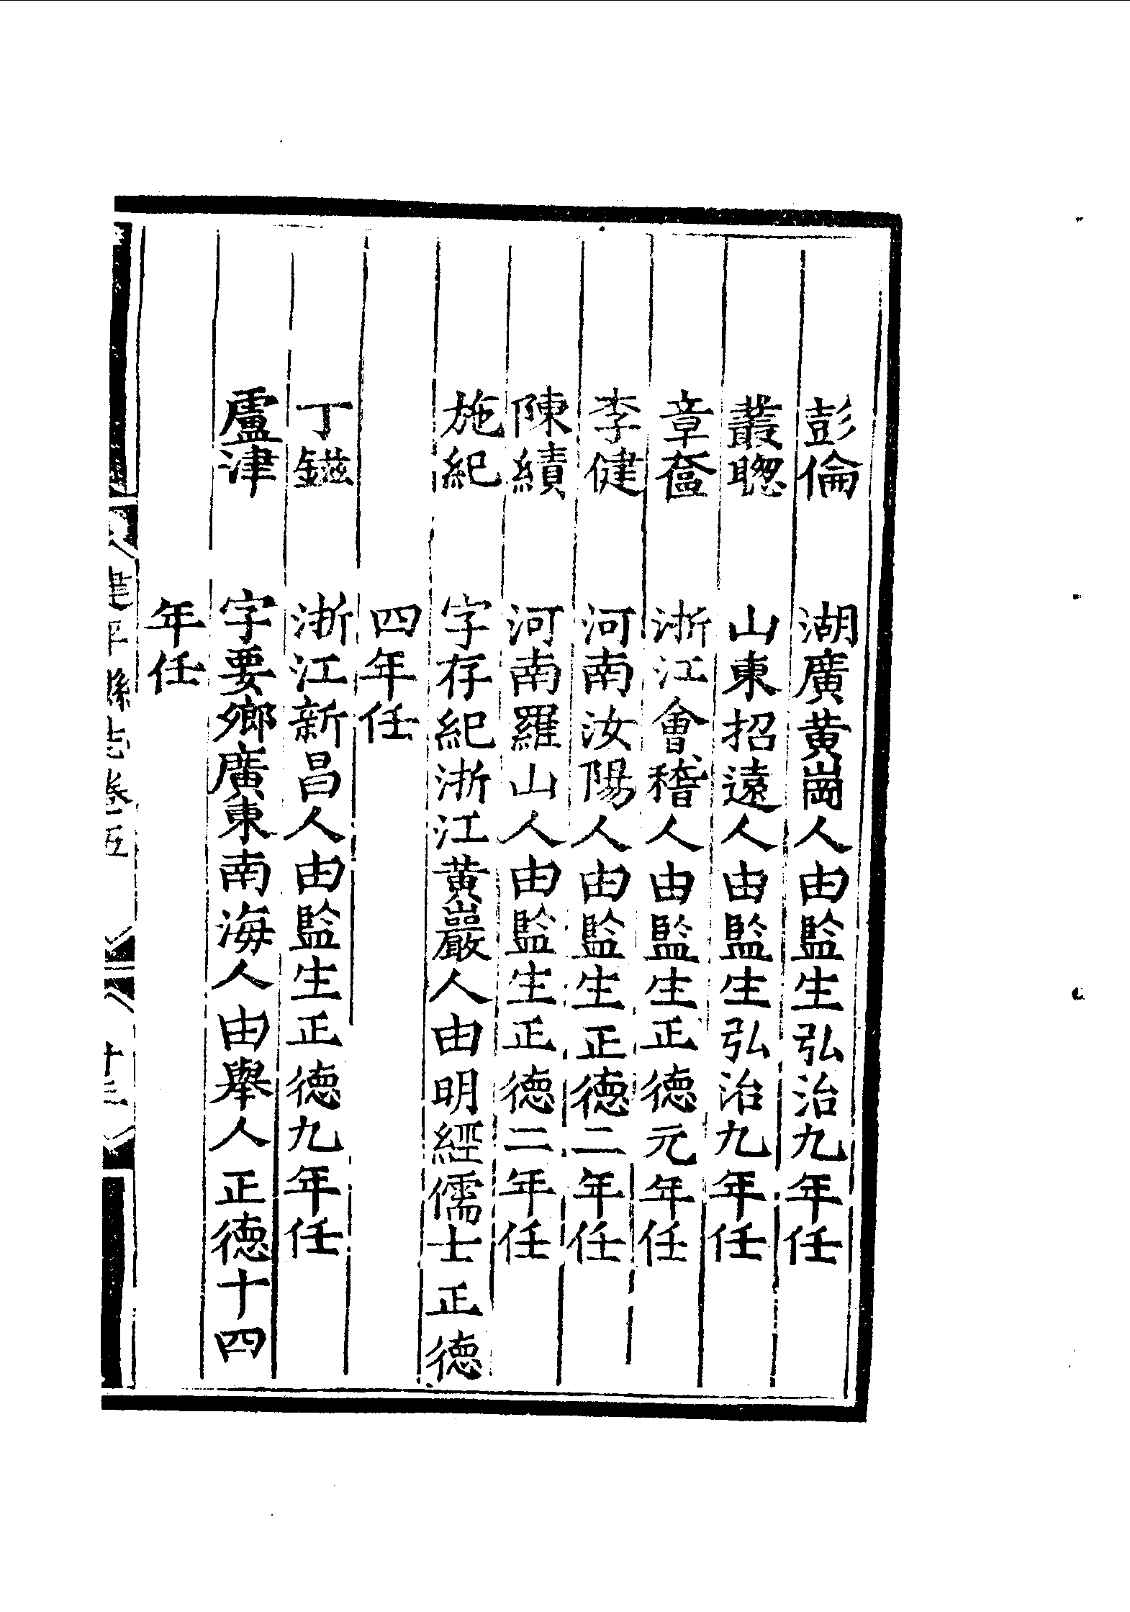 彭倫 湖廣黄崗人由監生弘治九年任
叢聰 山東招遠人由監生弘治九年任
章奩 浙江會稽人由監生正德元年任
李健 河南汝陽人由監生正德二年任
陳績 河南羅山人由監生正德二年任
施紀 字存紀浙江黄巖人由明經儒士正德
四年任
丁鎡 浙江新昌人由監生正德九年任
盧津 字要鄉廣東南海人由舉人正德十四
年任
建平縣志卷五 十三